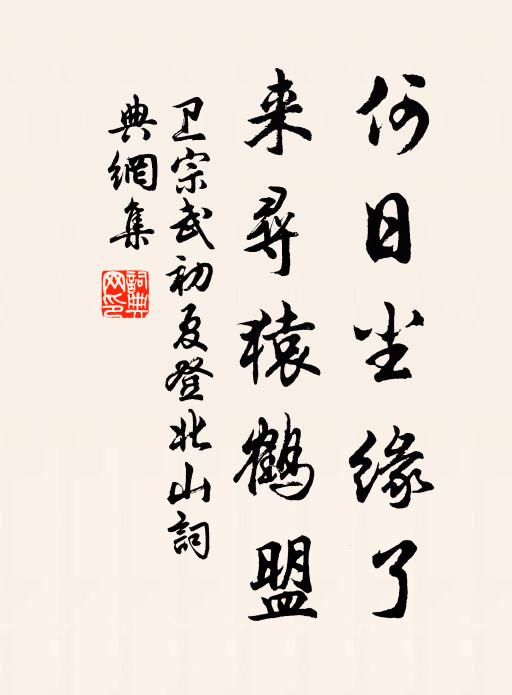 何日尘缘了
来寻猿鹤盟
卫宗武初夏登北山詞
典網集
詞典
网印